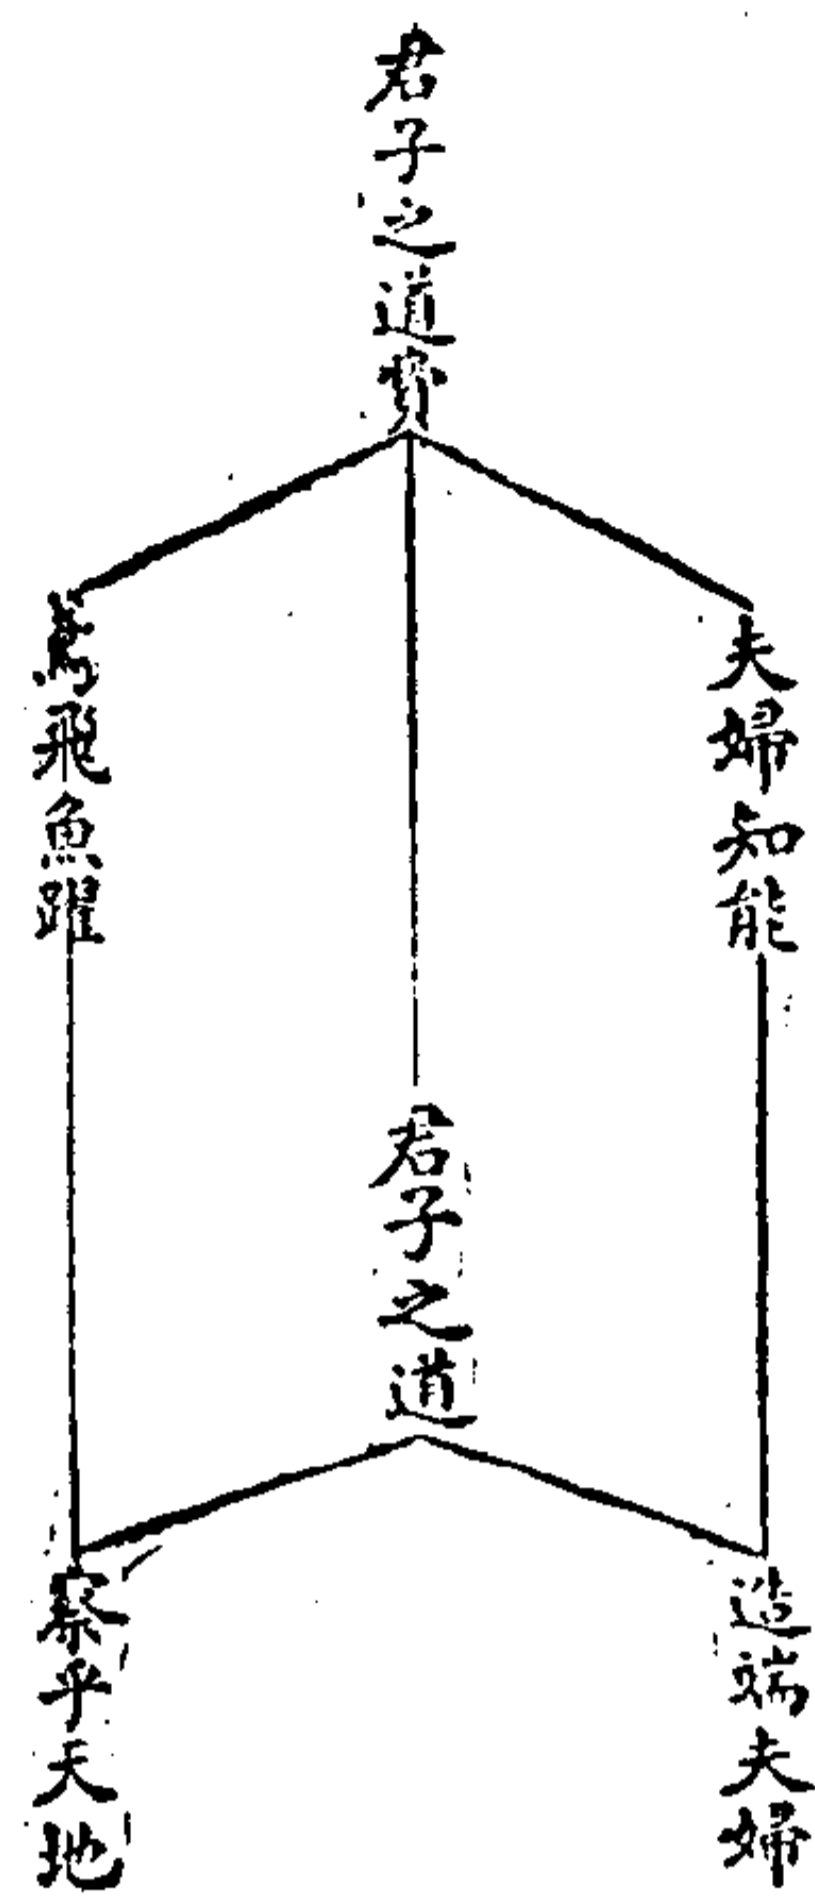 君子之道費
夫婦知能
鳶飛魚躍
君子之道
造端夫婦
察乎天地